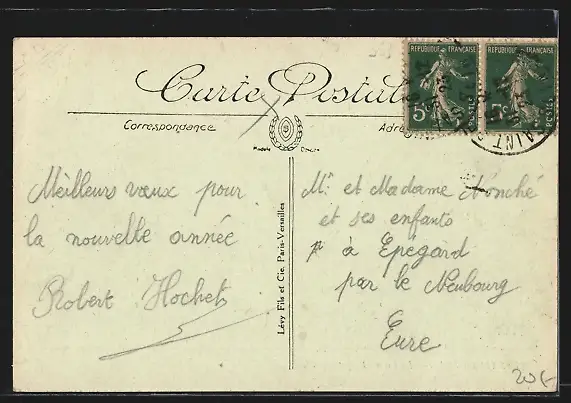 Carte Postale
Correspondance
RÉPUBLIQUE FRANÇAISE
5c
POSTES
RÉPUBLIQUE FRANÇAISE
5c
POSTES
SAINT
Meilleurs vœux pour
la nouvelle année
Robert Hochet
Lévy Fils et Cie, Paris-Versailles
Mr et Madame
et ses enfants
à Epégard
par le Neubourg
Eure